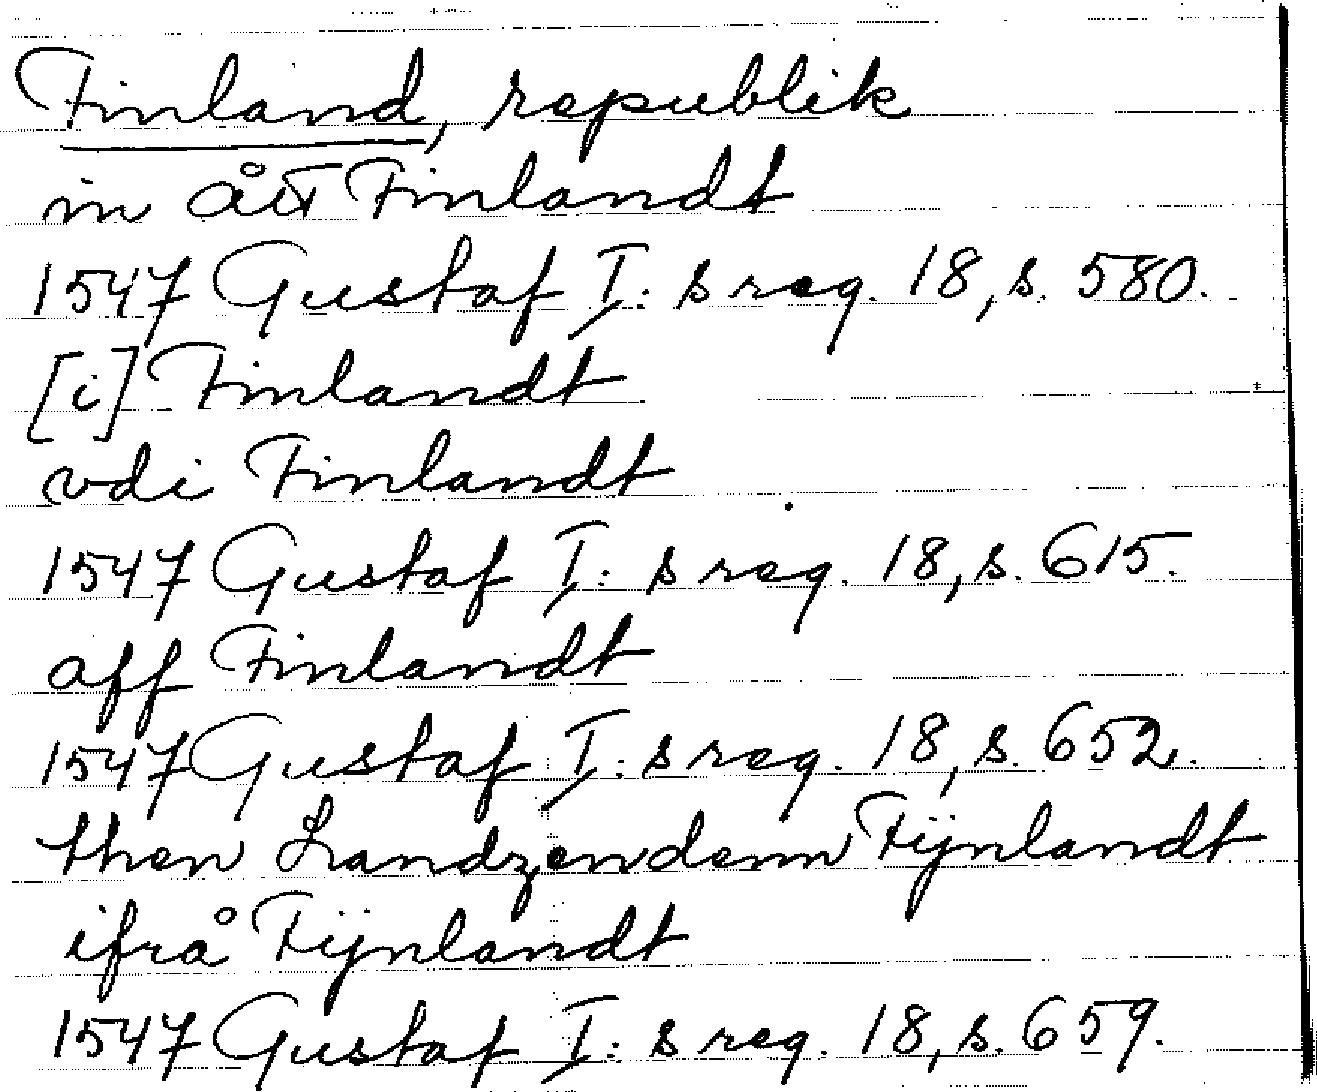 Finland, republik
in ått Finlandt
1547 Gustaf I: s reg. 18, s. 580.
[i] Finlandt
vdi Finlandt
1547 Gustaf I: s reg. 18, s. 615.
aff Finlandt
1547 Gustaf I: s reg. 18, s. 652.
then Landzendenn Fijnlandt
ifrå Fijnlandt
1547 Gustaf I: s reg. 18, s. 659.